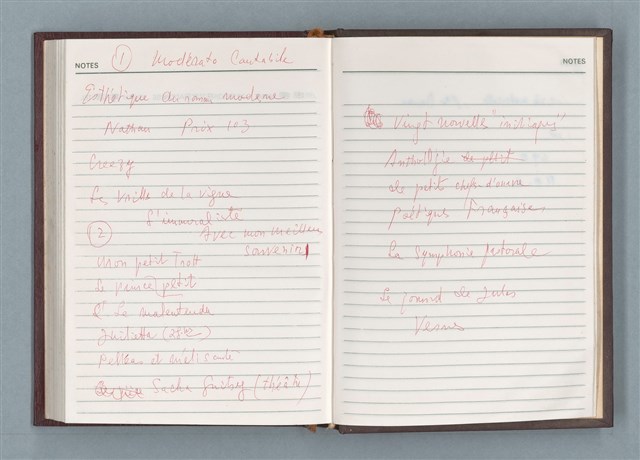 NOTES
① Moderato Cantabile
Esthétique du roman moderne
Nathan Prix 103
Creezy
Les Vrille de la vigne
L'immoraliste
② Avec mon meilleur
souvenir
Mon petit Trott
Le prince petit
Le malentendu
Juliette
Pelléas et mélisande
Sacha Guitry (théâtre)
NOTES
Vingt nouvelle
Anthologie de petit
de petit chefs d'oeuvre
Poétiques Françaises
La Symphonie pastorale
Le de Jules
Vernes